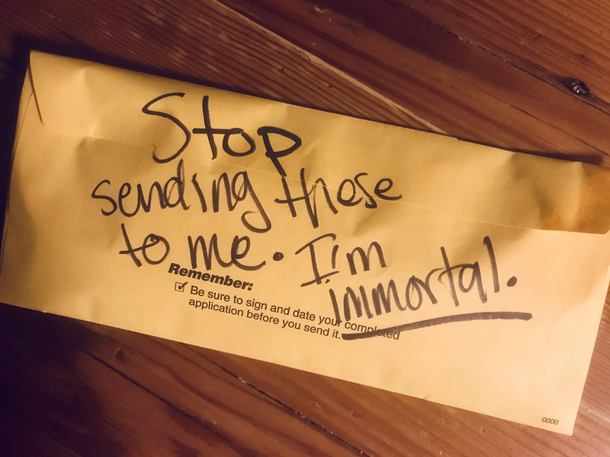 Stop
sending these
to me. I'm
immortal.
Remember:
☑ Be sure to sign and date your completed
application before you send it.
0000